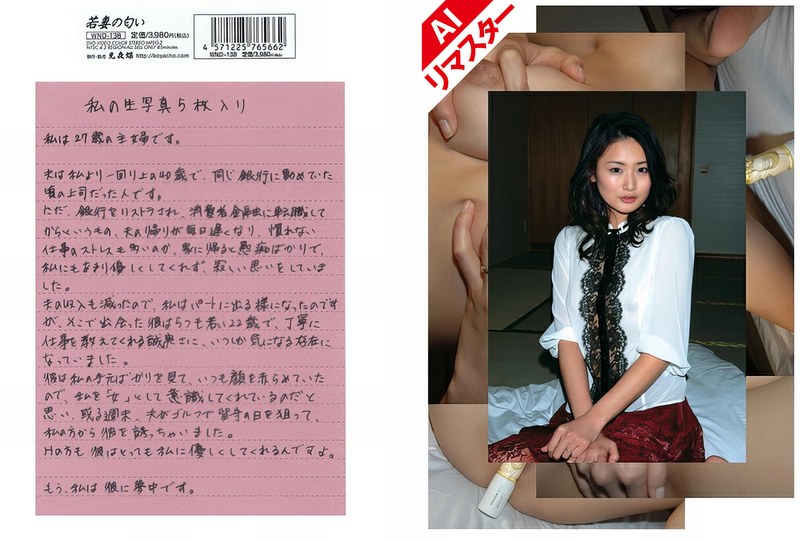 若妻の匂い
WND-138 定価/3,980円(税込)
DVD VIDEO COLOR STEREO MPEG-2
http://koyacho.com
4 571225 765662
WND-138 定価/3,980円(税込)
AI
リマスター
私の生写真5枚入り
私は27歳の主婦です。
夫は私より一回り上の40歳で、同じ銀行に勤めていた
頃の上司だった人です。
ただ、銀行をリストラされ、消費者金融に転職して
からというもの、夫の帰りが毎日遅くなり、慣れない
仕事のストレスも多いのか、家に帰ると愚痴ばかりで、
私にもあまり優しくしてくれず、寂しい思いをしていま
した。
夫の収入も減ったので、私はパートに出る様になったのです
が、そこで出会った彼は5つも若い22歳で、丁寧に
仕事を教えてくれる誠実さに、いつしか気になる存在に
なっていました。
彼は私の手元ばかりを見て、いつも顔を赤らめていた
ので、私を「女」として意識してくれているのだと
思い、或る週末、夫がゴルフで留守の日を狙って、
私の方から彼を誘っちゃいました。
Hの方も彼はとっても私に優しくしてくれるんですよ。
もう、私は彼に夢中です。